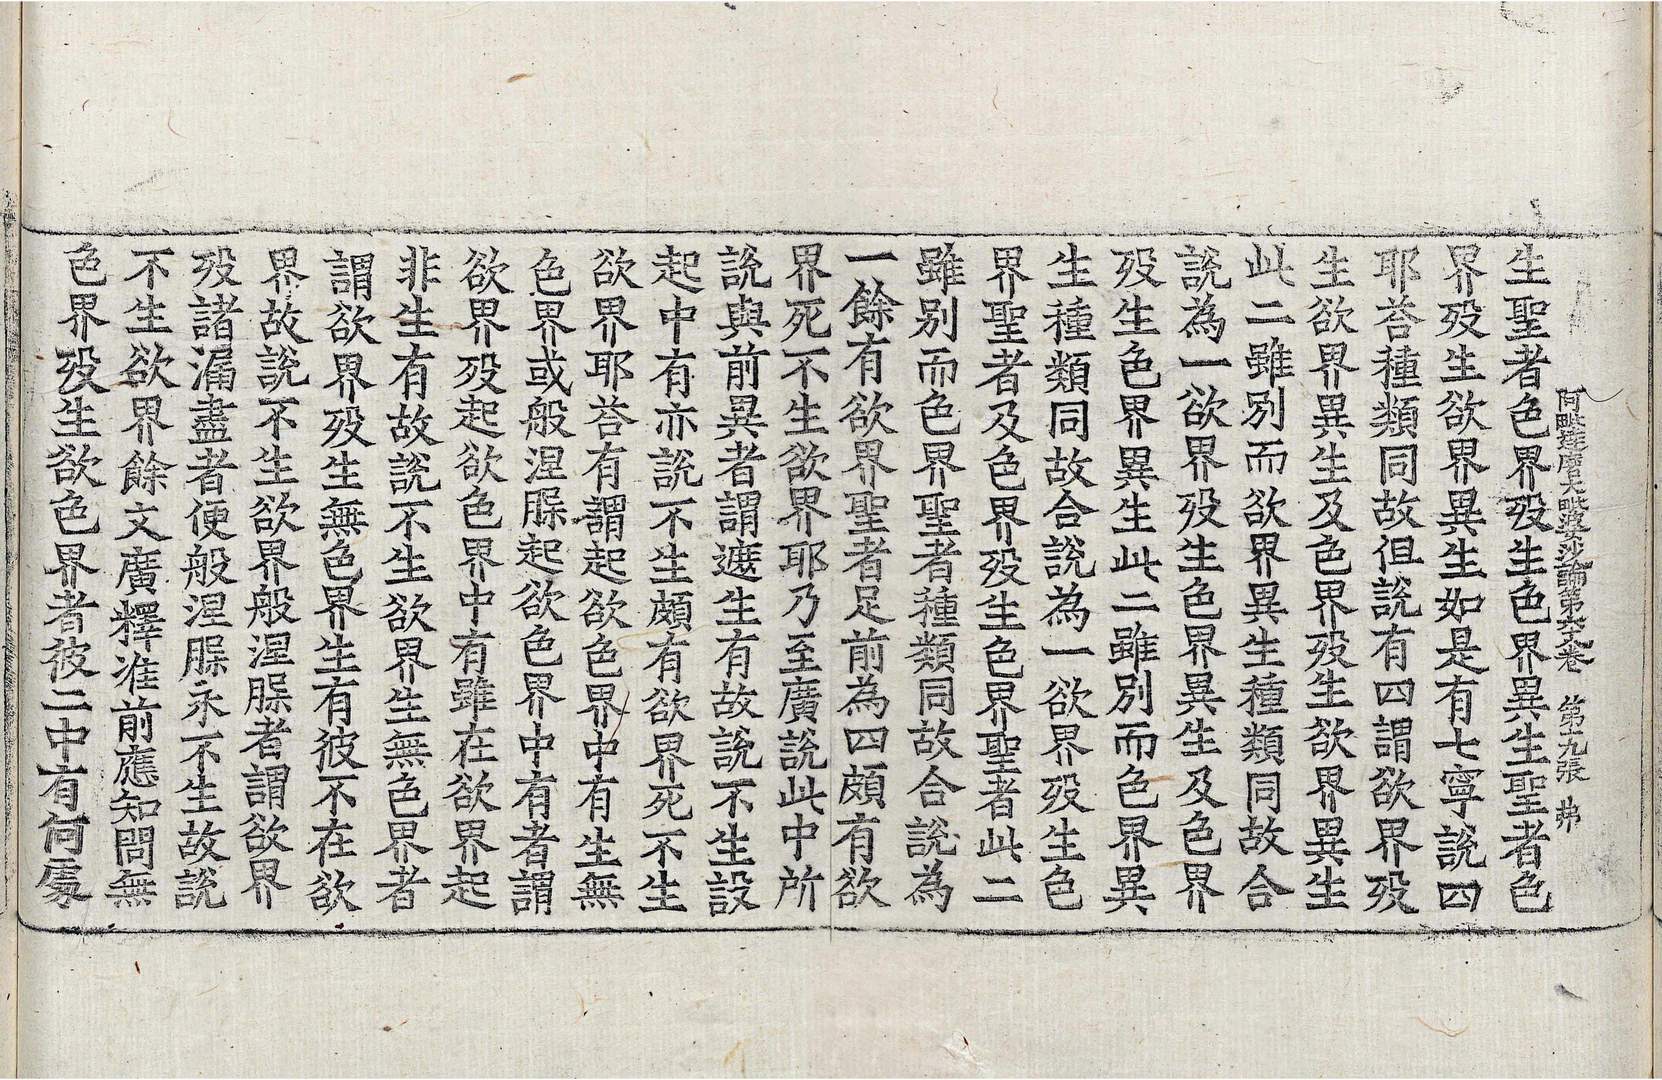 阿毗達磨大毗婆沙論第六十八卷　第十九張　弗
生聖者色界歿生色界異生聖者色
界歿生欲界異生如是有七寧說四
耶荅種類同故但說有四謂欲界歿
生欲界異生及色界歿生欲界異生
此二雖別而欲界異生種類同故合
說為一欲界歿生色界異生及色界
歿生色界異生此二雖別而色界異
生種類同故合說為一欲界歿生色
界聖者及色界歿生色界聖者此二
雖別而色界聖者種類同故合說為
一餘有欲界聖者足前為四頗有欲
界死不生欲界耶乃至廣說此中所
說與前異者謂遮生有故說不生設
起中有亦說不生頗有欲界死不生
欲界耶荅有謂起欲色界中有生無
色界或般涅槃起欲色界中有者謂
欲界歿起欲色界中有雖在欲界起
非生有故說不生欲界生無色界者
謂欲界歿生無色界生有彼不在欲
界故說不生欲界般涅槃者謂欲界
歿諸漏盡者便般涅槃永不生故說
不生欲界餘文廣釋准前應知問無
色界歿生欲色界者彼二中有何處